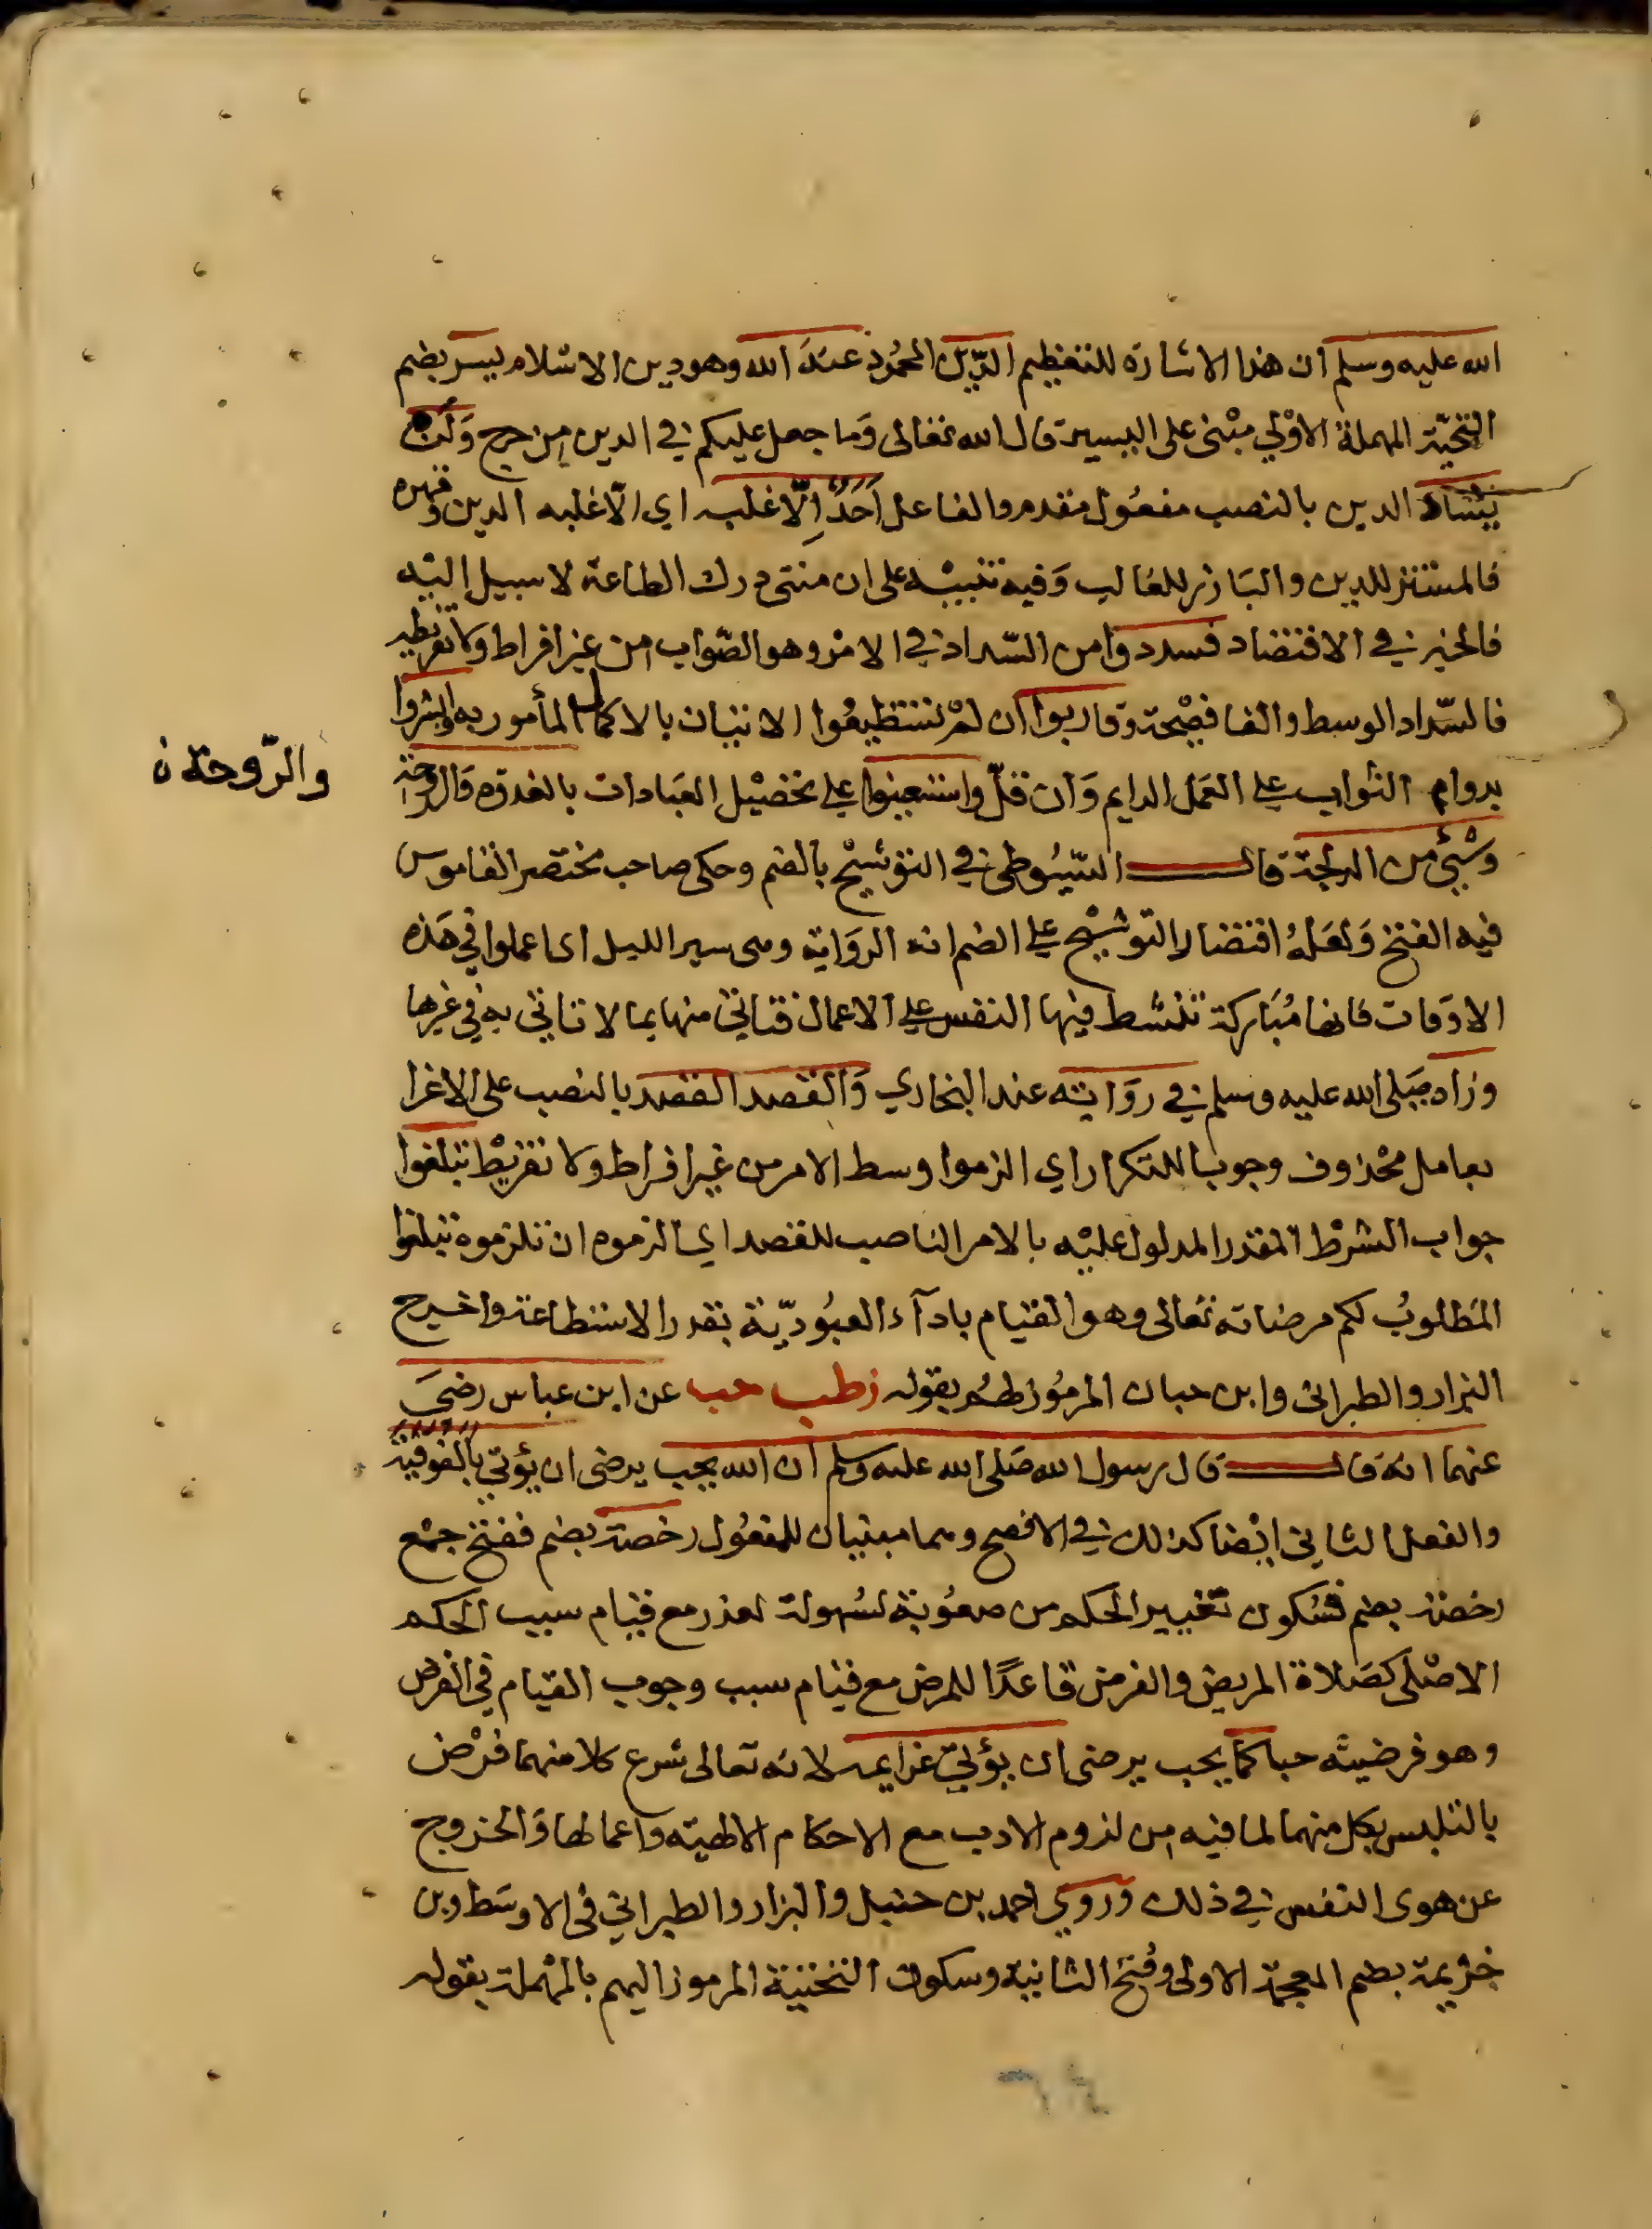 الله عليه وسلم ان هذا الاشارة للتعظيم الدّين المحمُود عندَ الله وهو دين الاسْلام يسر بضم
التحيّة المهملة الاوْلي مبْنى على اليسير قال الله تعالى وَما جعل عليكم في الدين من حرج وَلَن
يشاد الدين بالنصب مفعُول مقدم والفاعل اَحَدٌ اِلّا غلبه اي الّا غلبه الدين وقهره
فالمستتر للدين والبَارز للغالب وَفيه تنبيْه على ان منتهى درك الطاعة لا سبيل اليْه
فالخير في الاقتصاد فسددوا من السّداد في الامْر وهو الصّواب من غير افراط ولا تفريط
فالسّداد الوسط والفا فصْيحة وقاربوا ان لمْ تستطيعُوا الاتيان بالاكمال المأمور به وابشروا
بدوام الثواب على العَمل الدايم وَان قلّ واستعينوا على تحصيْل العبَادات بالغدوه وَالروحة
والرّوحة ن
وشْيئ من الدلجة قال السّيُوطي في التوشيْح بالضم وحكى صاحب مختصر القاموس
فيه الفتح وَلعَلهُ اقتضار التوشيْح على الضم انه الروَاية وهى سير الليل اى اعملوا في هَذه
الاوقات فانها مُبَاركة تنشط فيها النفس على الاعمال فتاتي منها بما لا تاتي به في غيرها
وزاد صَلى الله عليه وسلم في روَايته عند البخاري وَالقصد القصد بالنصب على الاغرا
بعامل محْذوف وجوبا للتكرار اي الزموا وسط الامر من غير افراط ولا تفريْط تبلغوا
جواب الشرْط المقدر المدلول عليْه بالامر الناصب للقصد اي الزموه ان تلزموه تبلغوا
المَطلوبُ لكم مرضاته تعَالى وهو القيام بادآء العبُوديّة بقدر الاستطاعة واخرج
البزار والطبرانى وابن حبان المرمُوز لهُم بقوله زطب حب عن ابن عباس رضيَ
عنهما انه قال قال رسول الله صَلى الله عليه وسلم ان الله يحب يرضى ان يؤتي بالفوقية
والفعل الثاني ايْضا كذلك في الافصح وهما مبنيان للمفعُول رخصه بضم ففتح جمْع
رخصة بضم فسُكون تغيير الحكم من صعُوبة لسُهولة لعذر مع قيام سبب الحكم
الاصْلى كصَلاة المريض والفرض قاعدًا للمرض مع قيام سبب وجوب القيام في الفرض
وهو فرضيته حبا كما يحب يرضى ان يؤتي عزايمه لانه تعالى شرع كلا منهما فرْض
بالتلبس بكل منهما لما فيه من لزوم الادب مع الاحكام الالهيّه واعمالها وَالخروج
عن هوى النفس في ذلك وروي احمد بن حنبل والبزار والطبراني فى الاوسَط وبن
خزيمة بضم المعجمة الاولى وفُتح الثانيه وسكون التحتية المرموز اليهم بالمهْملة بقوله